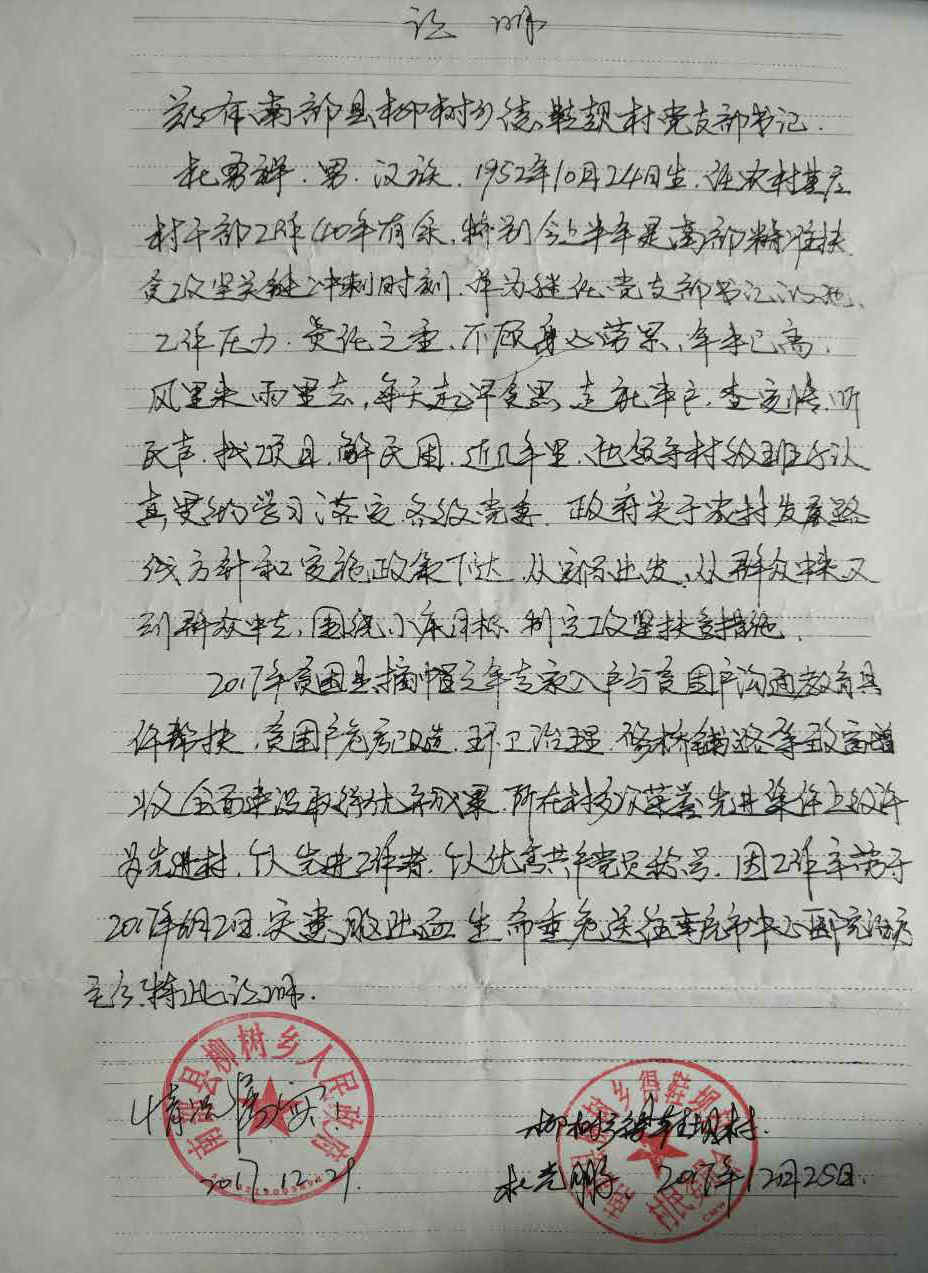 证明
兹有南部县柳树乡得鞋坝村党支部书记.
杜勇祥.男.汉族.1952年10月24日生.在农村基层
村干部工作40年有余,特别今上半年是南部精准扶
贫攻坚关键冲刺时刻.作为继任党支部书记的他、
工作压力.责任之重、不顾身心劳累,年事已高,
风里来雨里去,每天起早贪黑,走乱串户,查实情.听
民声.找项目.解民困.近几年里.他领导村级班子认
真贯彻学习落实各级党委.政府关于农村发展路
线方针和实施政策下达.从实际出发,从群众中来又
到群众中去,围绕小康目标.制定攻坚扶贫措施.
2017年贫困县摘帽之年专家入户与贫困户沟通教育具
体帮扶.贫困户危房改造.环卫治理.修桥铺路等致富增
收全面建设取得优异成果.所在村多次荣誉先进集体上级评
为先进村.个人先进工作者.个人优秀共产党员称号.因工作辛劳于
2017年6月2日.突遭脑出血生命垂危送往南充市中心医院治疗
至今.特此证明.
情况属实!
2017.12.29.
南部县柳树乡人民政府
柳树乡得鞋坝村.
杜光鹏 2017年12月25日.